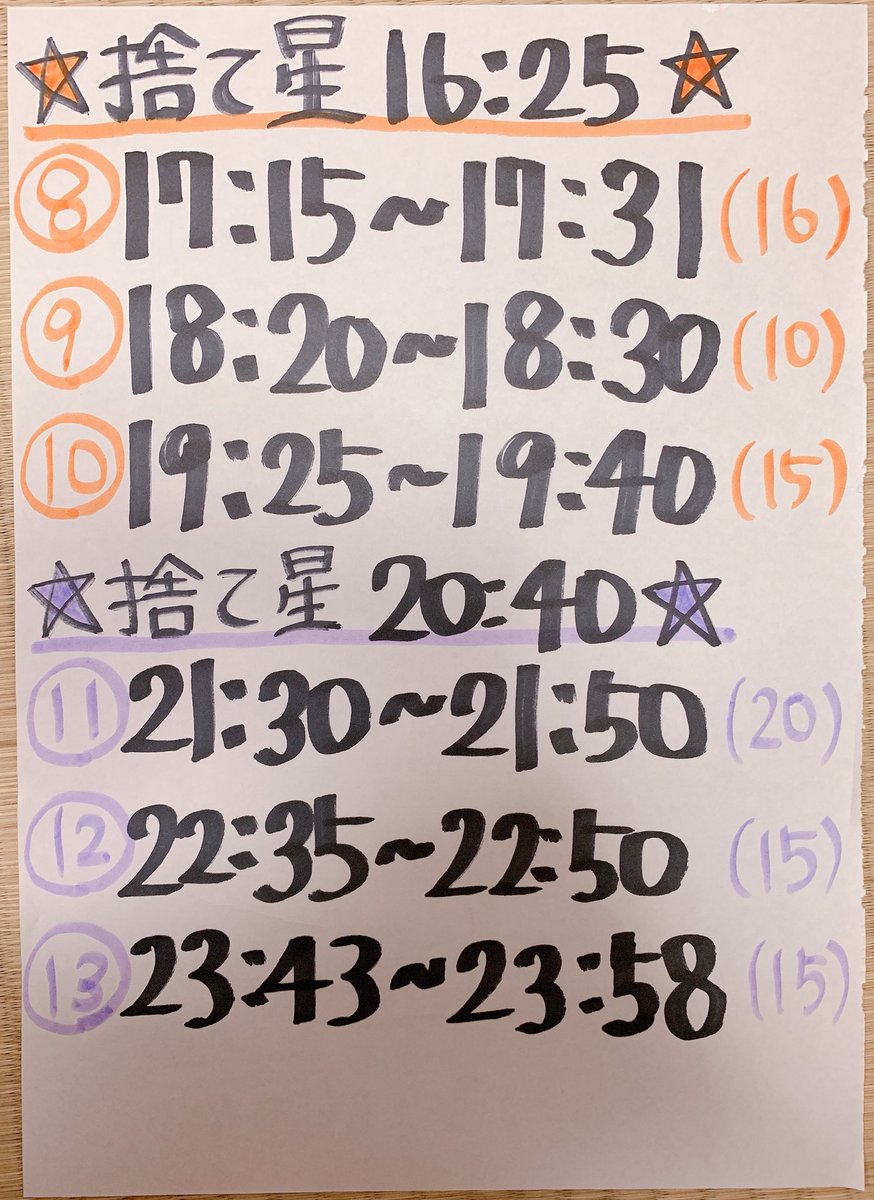 ☆捨て星 16:25☆
⑧17:15~17:31(16)
⑨18:20~18:30(10)
⑩19:25~19:40(15)
☆捨て星 20:40☆
⑪21:30~21:50(20)
⑫22:35~22:50(15)
⑬23:43~23:58(15)